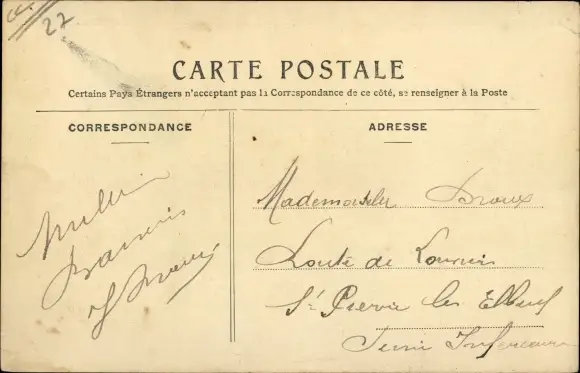 27
CARTE POSTALE
Certains Pays Étrangers n'acceptant pas la Correspondance de ce côté, se renseigner à la Poste
CORRESPONDANCE
ADRESSE
Baisers
Mademoiselle Droux
Route de Louviers
St Pierre les Elbeuf
Seine Inférieure